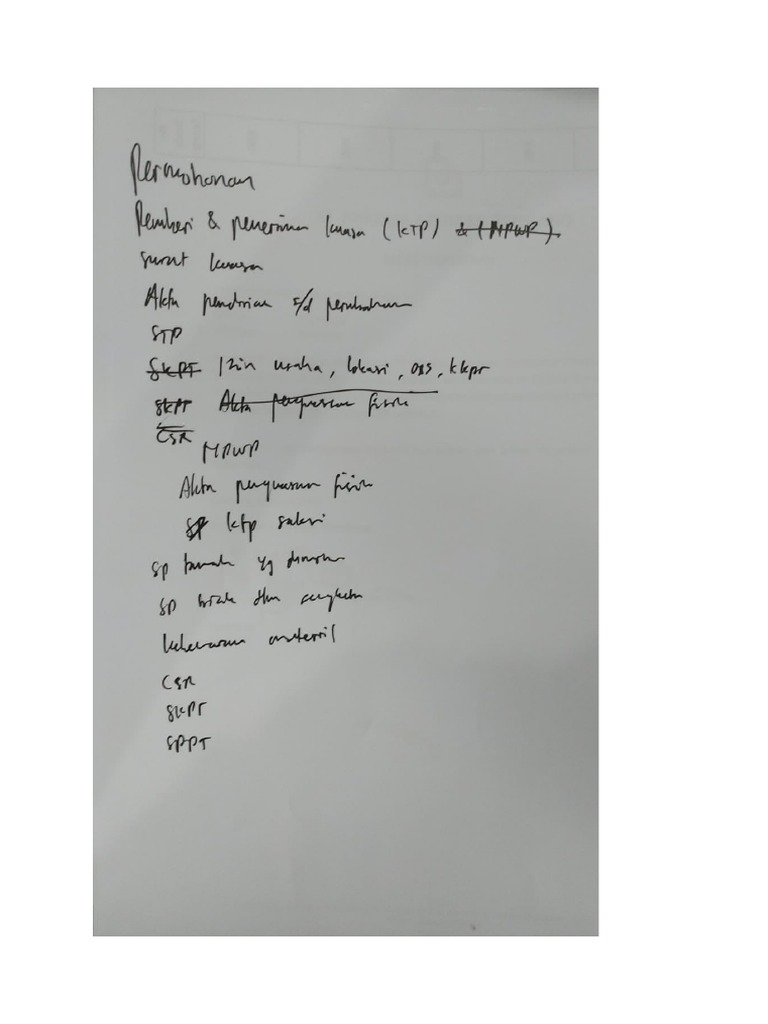 Permohonan
Pemberi & penerima kuasa (KTP) & (NPWP).
Surat kuasa
Akta pendirian s/d perubahan
STP
SKPT Izin usaha, lokasi, OSS, kkpr
SKPT Akta penguasaan fisik
CSR
NPWP
Akta penguasaan fisik
SP ktp saksi
SP tanah yg dimohon
SP tidak dlm sengketa
kebenaran materiil
CSR
SKPT
SPPT